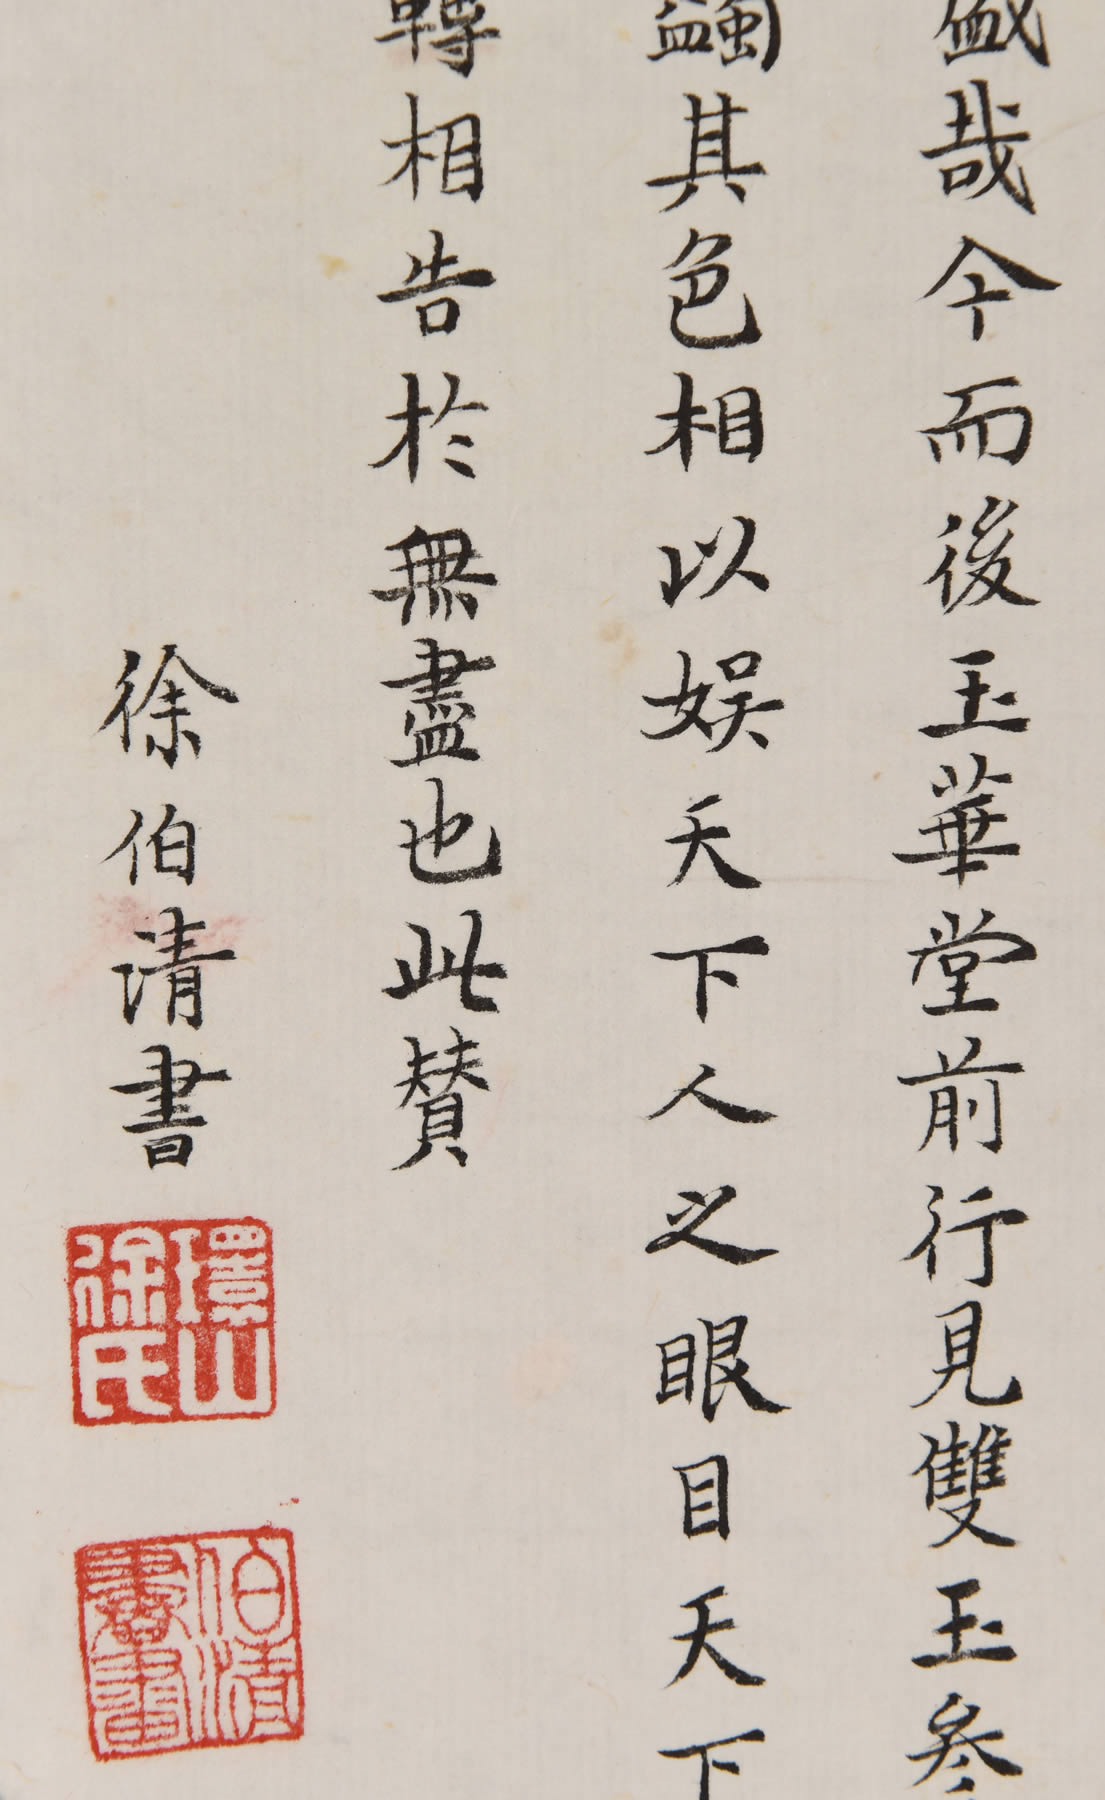 盛哉今而後玉華堂前行見雙玉参
蠲其色相以娱天下人之眼目天下
轉相告於無盡也此贊
徐伯清書
環山徐氏
伯清書畫